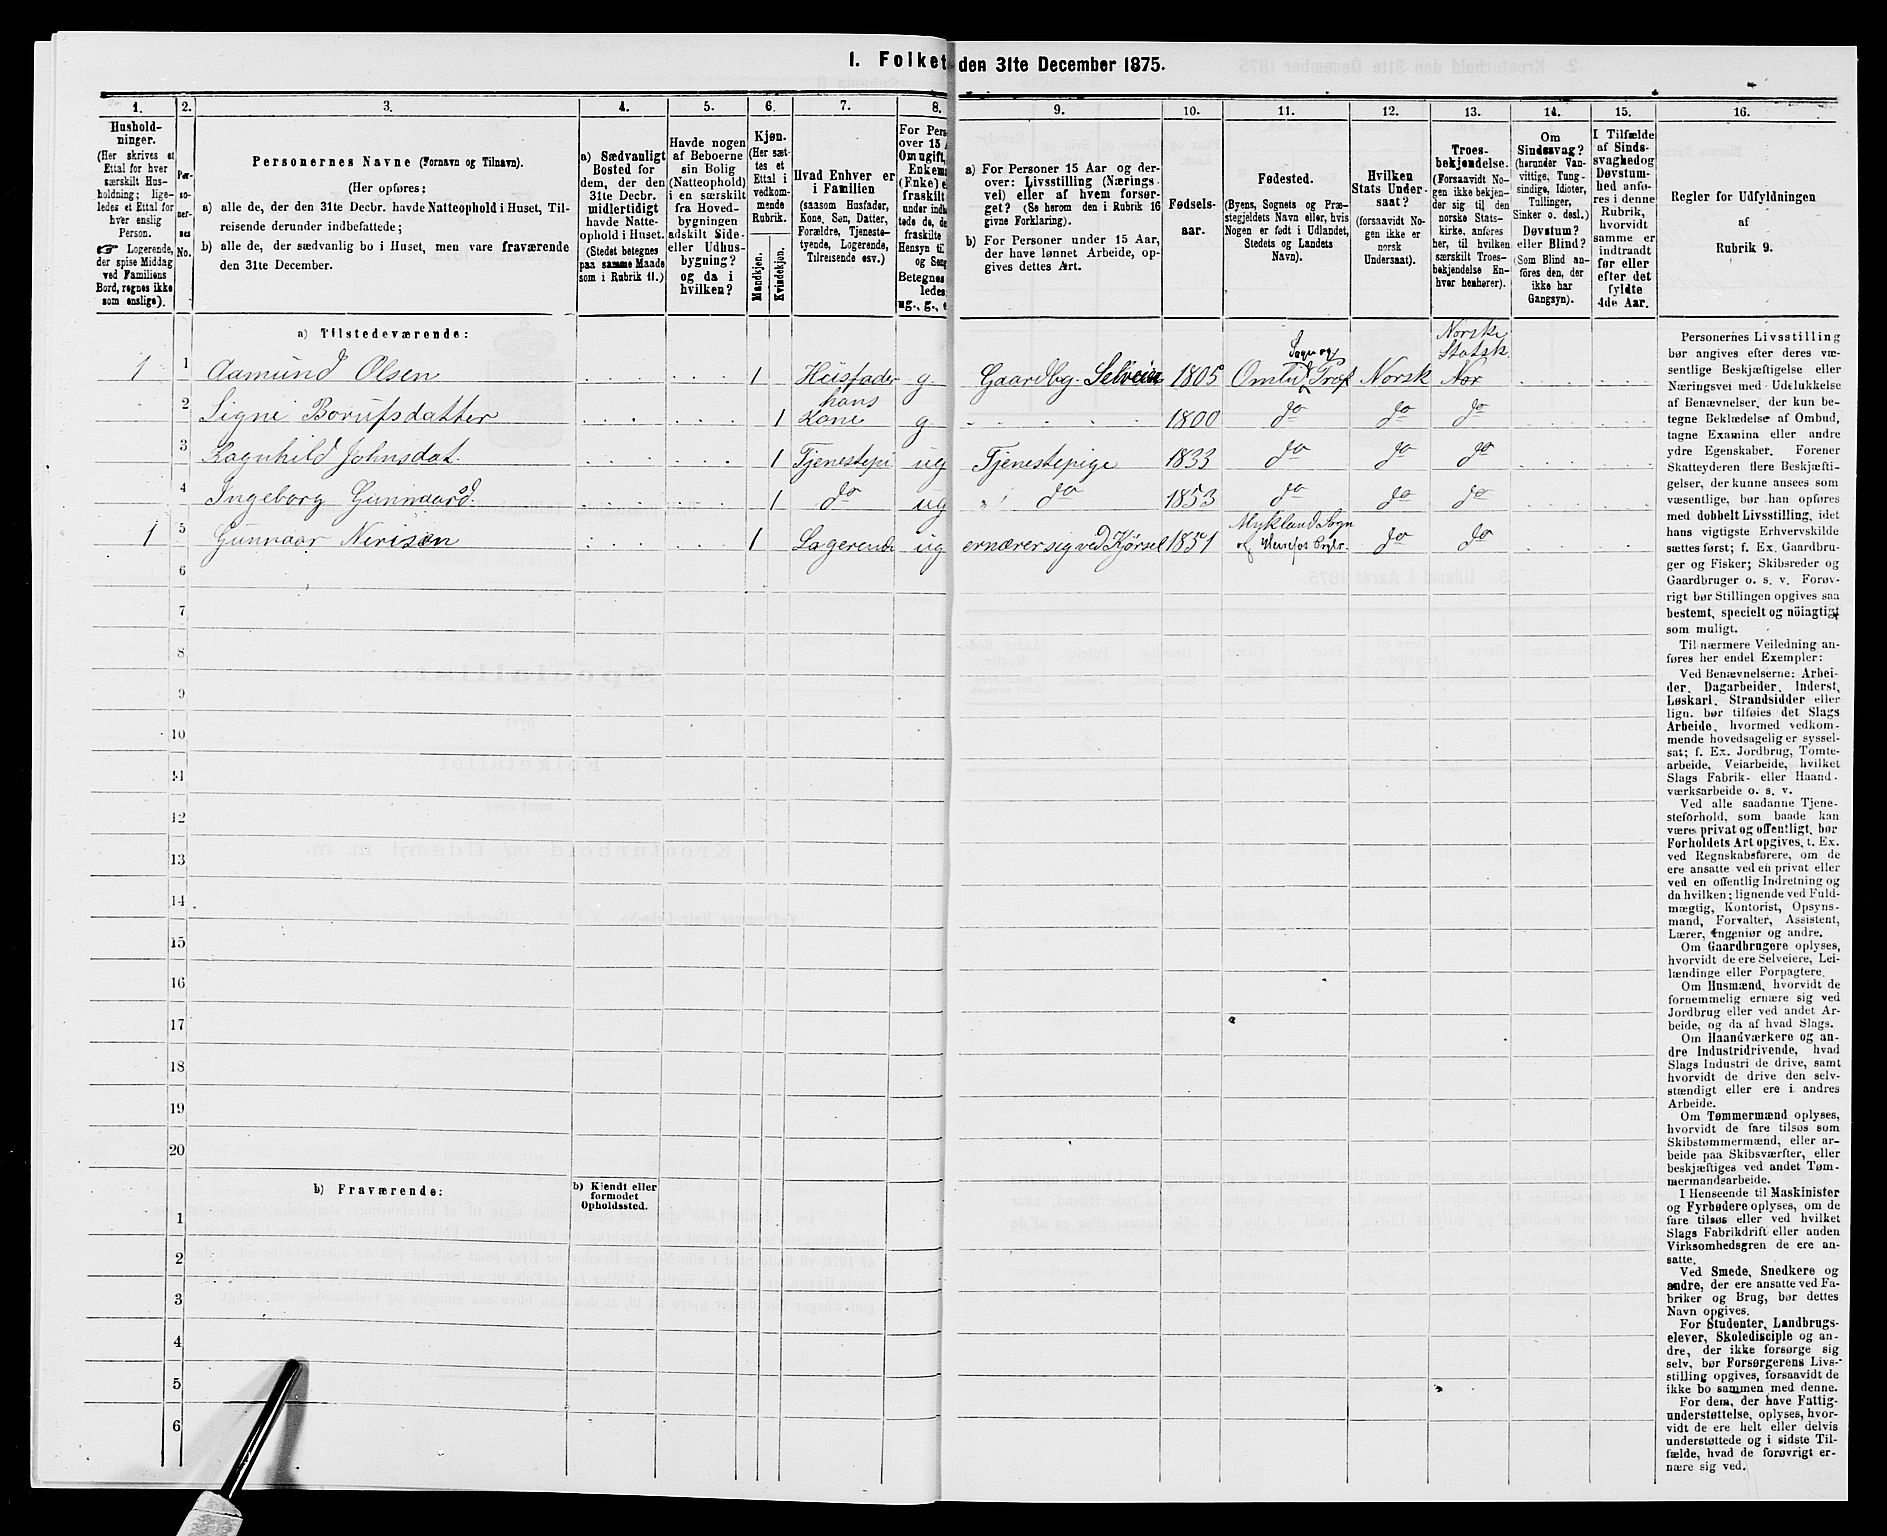 1. Folket
den 31te December 1875.
1.
Hushold-
ninger.
(Her skrives et
Ettal for hver
særskilt Hus-
holdning; lige-
ledes et Ettal for
hver enslig
Person.
Logerende,
der spise Middag
ved Familiens
Bord, regnes ikke
som enslige).
2.
Per-
so-
ner-
nes
No.
3.
Personernes Navne (Fornavn og Tilnavn).
(Her opføres:
a) alle de, der den 31te Decbr. havde Natteophold i Huset, Til-
reisende derunder indbefattede;
b) alle de, der sædvanlig bo i Huset, men vare fraværende
den 31te December.
4.
a) Sædvanligt
Bosted for
dem, der den
31te Decbr.
midlertidigt
havde Natte-
ophold i Huset.
(Stedet betegnes
paa samme Maade
som i Rubrik 11.)
5.
Havde nogen
af Beboerne
sin Bolig
(Natteophold)
i en særskilt
fra Hoved-
bygningen
adskilt Side-
eller Udhus-
bygning?
og da i
hvilken?
6.
Kjøn.
(Her sæt-
tes et
Ettal i
vedkom-
mende
Rubrik.
Mandkjøn.
Kvindekjøn.
7.
Hvad Enhver er
i Familien
(saasom Husfader,
Kone, Søn, Datter,
Forældre, Tjeneste-
tyende, Logerende,
Tilreisende osv.)
8.
For Pers
over 15 A
Om ugift,
Enkem
(Enke) e
fraskilt
under indb
tede de, d
fraskilte
Hensyn ti
og Seng
Betegnes
ledes
ug., g., e
9.
a) For Personer 15 Aar og der-
over: Livsstilling (Nærings-
vei) eller af hvem forsør-
get? (Se herom den i Rubrik 16
givne Forklaring).
b) For Personer under 15 Aar,
der have lønnet Arbeide, op-
gives dettes Art.
10.
Fødsels-
aar.
11.
Fødested.
(Byens, Sognets og Præ-
stegjeldets Navn eller, hvis
Nogen er født i Udlandet,
Stedets og Landets
Navn).
12.
Hvilken
Stats Under-
saat?
(forsaavidt No-
gen ikke er
norsk
Undersaat).
13.
Troes-
bekjendelse.
(Forsaavidt No-
gen ikke bekjen-
der sig til den
norske Stats-
kirke, anføres
her, til hvilken
særskilt Troes-
bekjendelse En-
hver henhører).
14.
Om
Sindssvag?
(herunder Van-
vittige, Tung-
sindige, Idioter,
Tullinger,
Sinker o. desl.)
Døvstum?
eller Blind?
(Som Blind an-
føres den, der
ikke har
Gangsyn).
15.
I Tilfælde
af Sinds-
svaghed og
Døvstum-
hed anfø-
res i denne
Rubrik,
hvorvidt
samme er
indtraadt
før eller
efter det
fyldte
4de Aar.
16.
Regler for Udfyldningen
af
Rubrik 9.
a) Tilstedeværende:
Norske
Statsk.
Sogn og
1 1 Aamund Olsen 1 Husfader g. Gaardbg. Selveier 1805 Omlid Præst Norsk Nor
hans
2 Signe Borufsdatter 1 Kone g 1800 do do do
3 Ragnhild Johnsdat. 1 Tjenestepi ug Tjenestepige 1833 do do do
4 Ingeborg Gunnaarsd. 1 do ug " do 1853 do do do
Mykland Sogn
1 5 Gunnaar Nerisen 1 Logerende ug ernærer sig ved Kjørsel 1851 og Herefos Prgld. do do
6
7
8
9
10
11
12
13
14
15
16
17
18
19
20
b) Fraværende:
b) Kjendt eller
formodet
Opholdssted.
1
2
3
4
5
6
Personernes Livsstilling
bør angives efter deres væ-
sentlige Beskjæftigelse eller
Næringsvei med Udelukkelse
af Benævnelser, der kun be-
tegne Beklædelse af Ombud,
tagne Examina eller andre
ydre Egenskaber. Forener
Skatteyderen flere Beskjæfti-
gelser, der kunne ansees som
væsentlige, bør han opføres
med dobbelt Livsstilling, idet
hans vigtigste Erhvervskilde
sættes først; f. Ex. Gaardbru-
ger og Fisker; Skibsreder og
Gaardbruger o. s. v. Forøv-
rigt bør Stillingen opgives saa
bestemt, specielt og nöiagtigt
som muligt.
Til nærmere Veiledning an-
føres her endel Exempler:
Ved Benævnelserne: Arbei-
der, Dagarbeider, Inderst,
Løskarl, Strandsidder eller
lign. bør tilføies det Slags
Arbeide, hvormed vedkom-
mende hovedsagelig er syssel-
sat; f. Ex. Jordbrug, Tomte-
arbeide, Veiarbeide, hvilket
Slags Fabrik- eller Haand-
værksarbeide o. s. v.
Ved alle saadanne Tjene-
steforhold, som baade kan
være privat og offentligt, bør
Forholdets Art opgives, t. Ex.
ved Regnskabsførere, om de
ere ansatte ved en privat eller
ved en offentlig Indretning og
da hvilken; lignende ved Fuld-
mægtig, Kontorist, Opsyns-
mand, Forvalter, Assistent,
Lærer, Ingeniør og andre.
Om Gaardbrugere oplyses,
hvorvidt de ere Selveiere, Lei-
lændinge eller Forpagtere.
Om Husmænd, hvorvidt de
fornemmelig ernære sig ved
Jordbrug eller ved andet Ar-
beide, og da af hvad Slags.
Om Haandværkere og an-
dre Industridrivende, hvad
Slags Industri de drive, samt
hvorvidt de drive den selv-
stændigt eller ere i andres
Arbeide.
Om Tømmermænd oplyses,
hvorvidt de fare tilsøs som
Skibstømmermænd, eller ar-
beide paa Skibsværfter, eller
beskjæftiges ved andet Tøm-
mermandsarbeide.
I Henseende til Maskinister
og Fyrbødere oplyses, om de
fare tilsøs eller ved hvilket
Slags Fabrikdrift eller anden
Virksomhedsgren de ere an-
satte.
Ved Smede, Snedkere og
andre, der ere ansatte ved Fa-
briker og Brug, bør dettes
Navn opgives.
For Studenter, Landbrugs-
elever, Skoledisciple og an-
dre, der ikke forsørge sig
selv, bør Forsørgerens Livs-
stilling opgives, forsaavidt de
ikke bo sammen med denne.
For dem, der have Fattig-
understøttelse, oplyses, hvor-
vidt de ere helt eller delvis
understøttede og i sidste Til-
fælde, hvad de forøvrigt er-
nære sig ved.